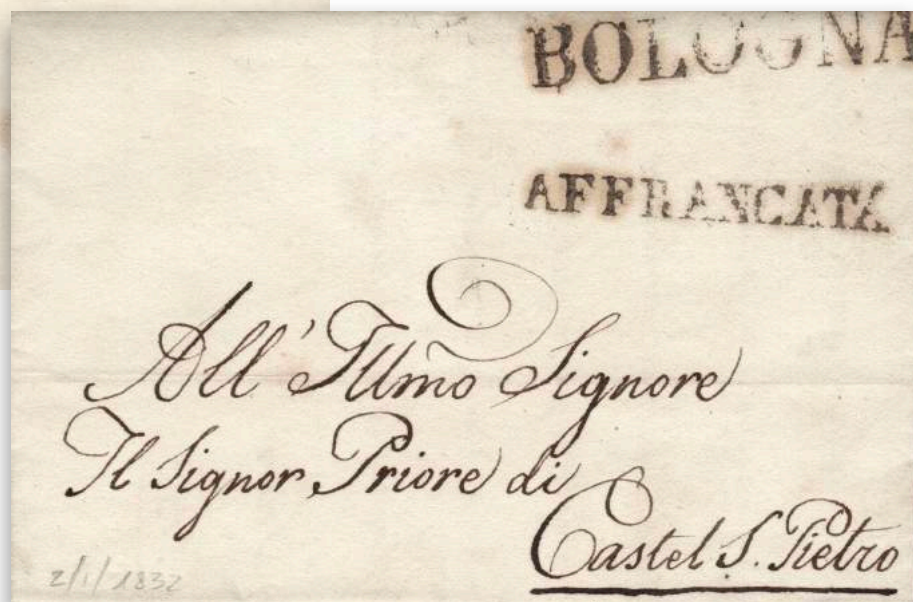 BOLOGNA
AFFRANCATA
All' Illmo Signore
Il Signor Priore di
Castel S. Pietro
2/1/1832